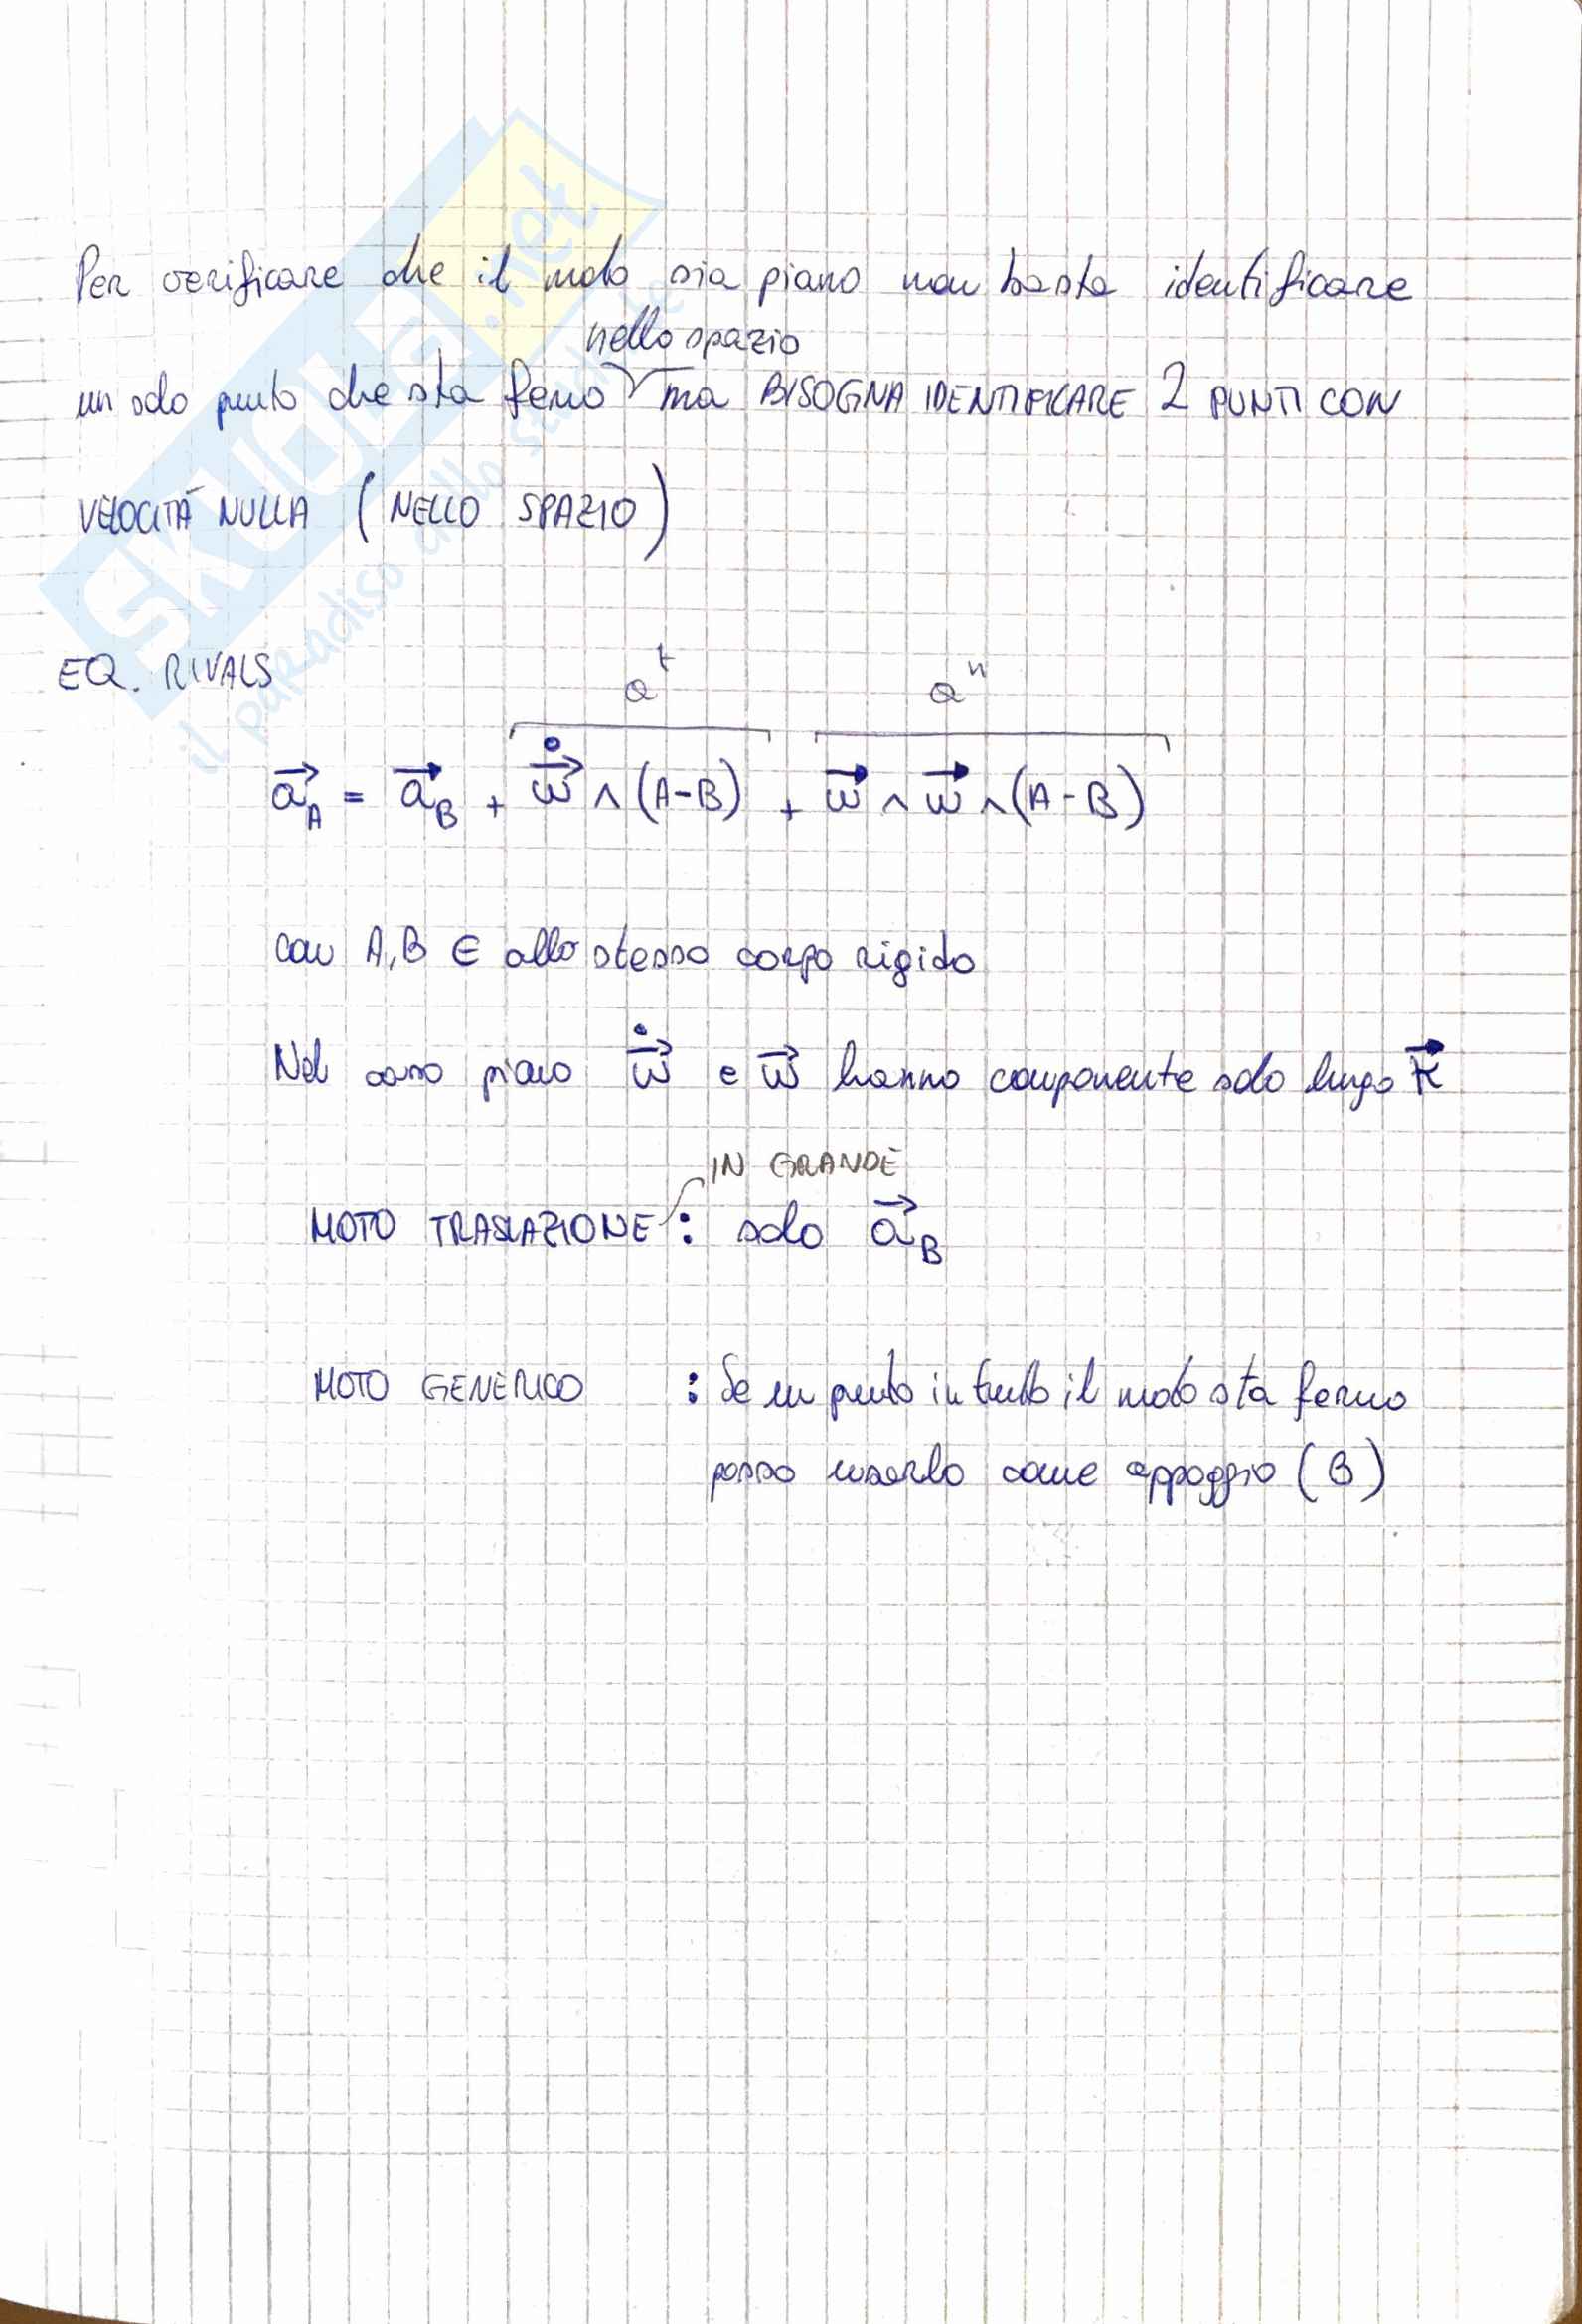 Per verificare che il moto sia piano non basta identificare
nello spazio
un solo punto che sta fermo ma BISOGNA IDENTIFICARE 2 PUNTI CON
VELOCITÀ NULLA (NELLO SPAZIO)
EQ. RIVALS
a^t a^n
\vec{a}_A = \vec{a}_B + \dot{\vec{ω}} ∧ (A-B) + \vec{ω} ∧ \vec{ω} ∧ (A-B)
con A,B ∈ allo stesso corpo rigido
Nel caso piano \dot{\vec{ω}} e \vec{ω} hanno componente solo lungo \vec{k}
IN GRANDE
MOTO TRASLAZIONE : solo \vec{a}_B
MOTO GENERICO : Se un punto in tutto il moto sta fermo
posso usarlo come appoggio (B)
SKUOLA.net
il paradiso dello studente